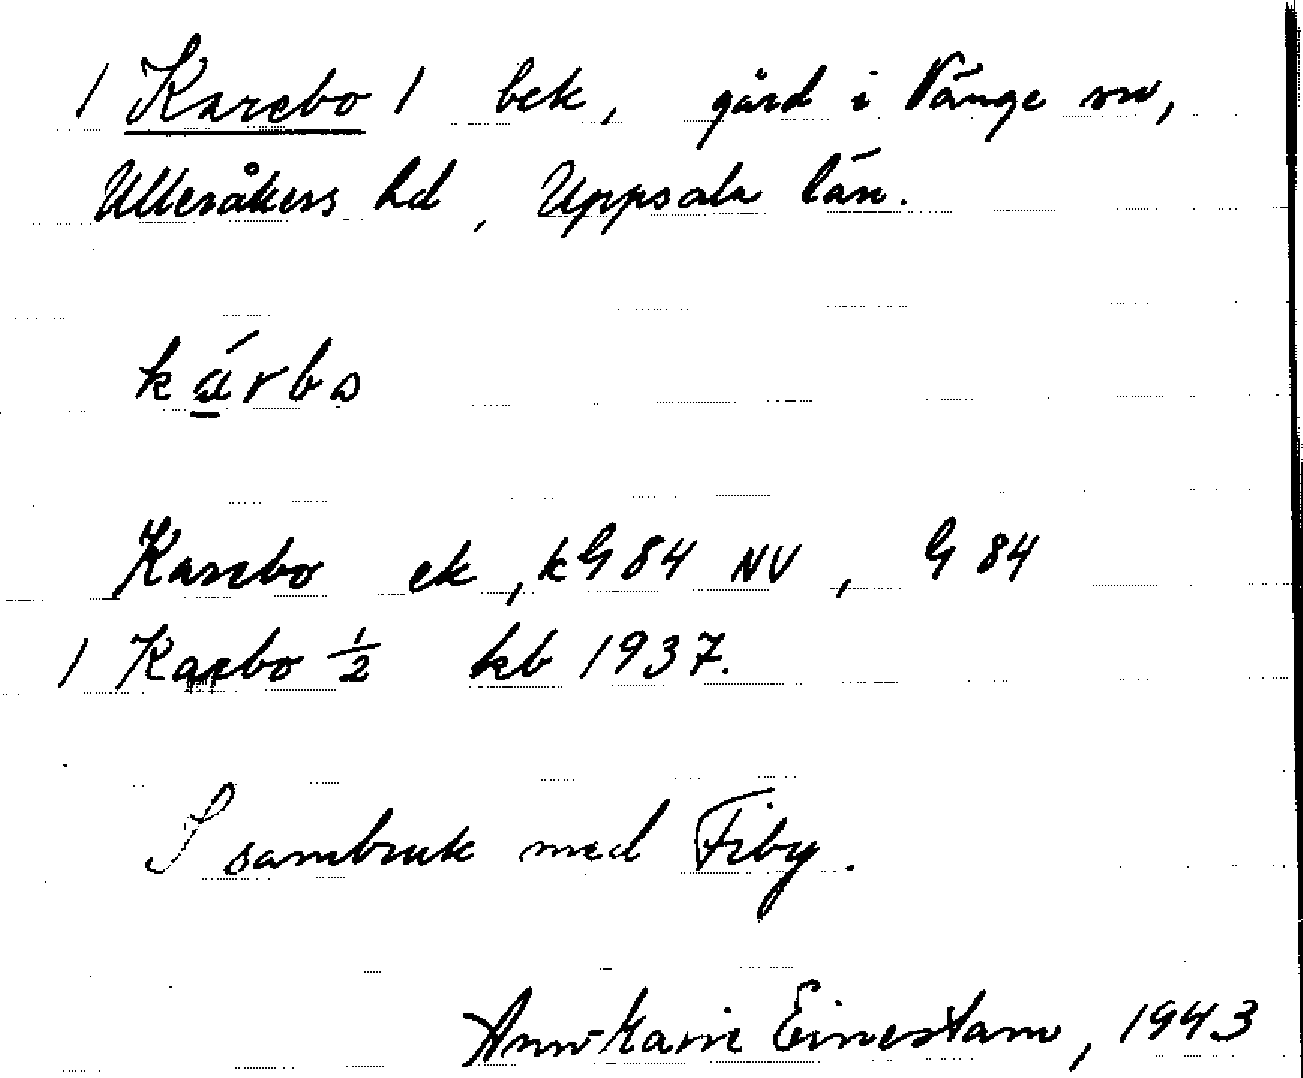 / Karebo / bek, gård i Vänge sn,
Ulleråkers hd, Uppsala län.
kárbo
Karebo ek, kG84 NV, G 84
/ Karbo ½ kb 1937.
I sambruk med Fiby.
Ann-Marie Einestam, 1943